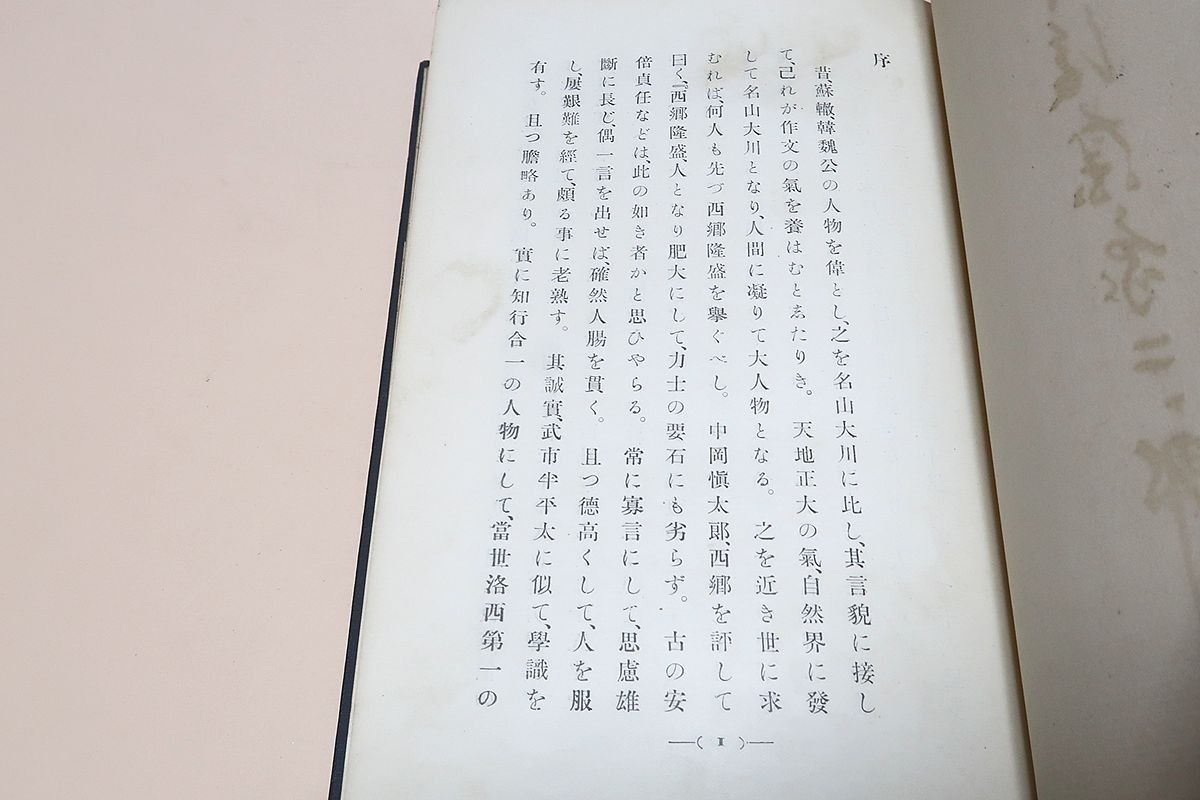 序
昔、蘇轍、韓魏公の人物を偉とし、之を名山大川に比し、其言貌に接し
て、己れが作文の氣を養はむとゑたりき。天地正大の氣、自然界に發
して名山大川となり、人間に凝りて大人物となる。之を近き世に求
むれば、何人も先づ西鄕隆盛を擧ぐべし。中岡愼太郎、西鄕を評して
曰く、『西鄕隆盛、人となり肥大にして、力士の要石にも劣らず。古の安
倍貞任などは、此の如き者かと思ひやらる。常に寡言にして、思慮雄
斷に長じ、偶一言を出せば、確然人腸を貫く。且つ德高くして、人を服
し、屢艱難を經て、頗る事に老熟す。其誠實、武市半平太に似て、學識を
有す。且つ膽略あり。實に知行合一の人物にして、當世洛西第一の
—( 1 )—